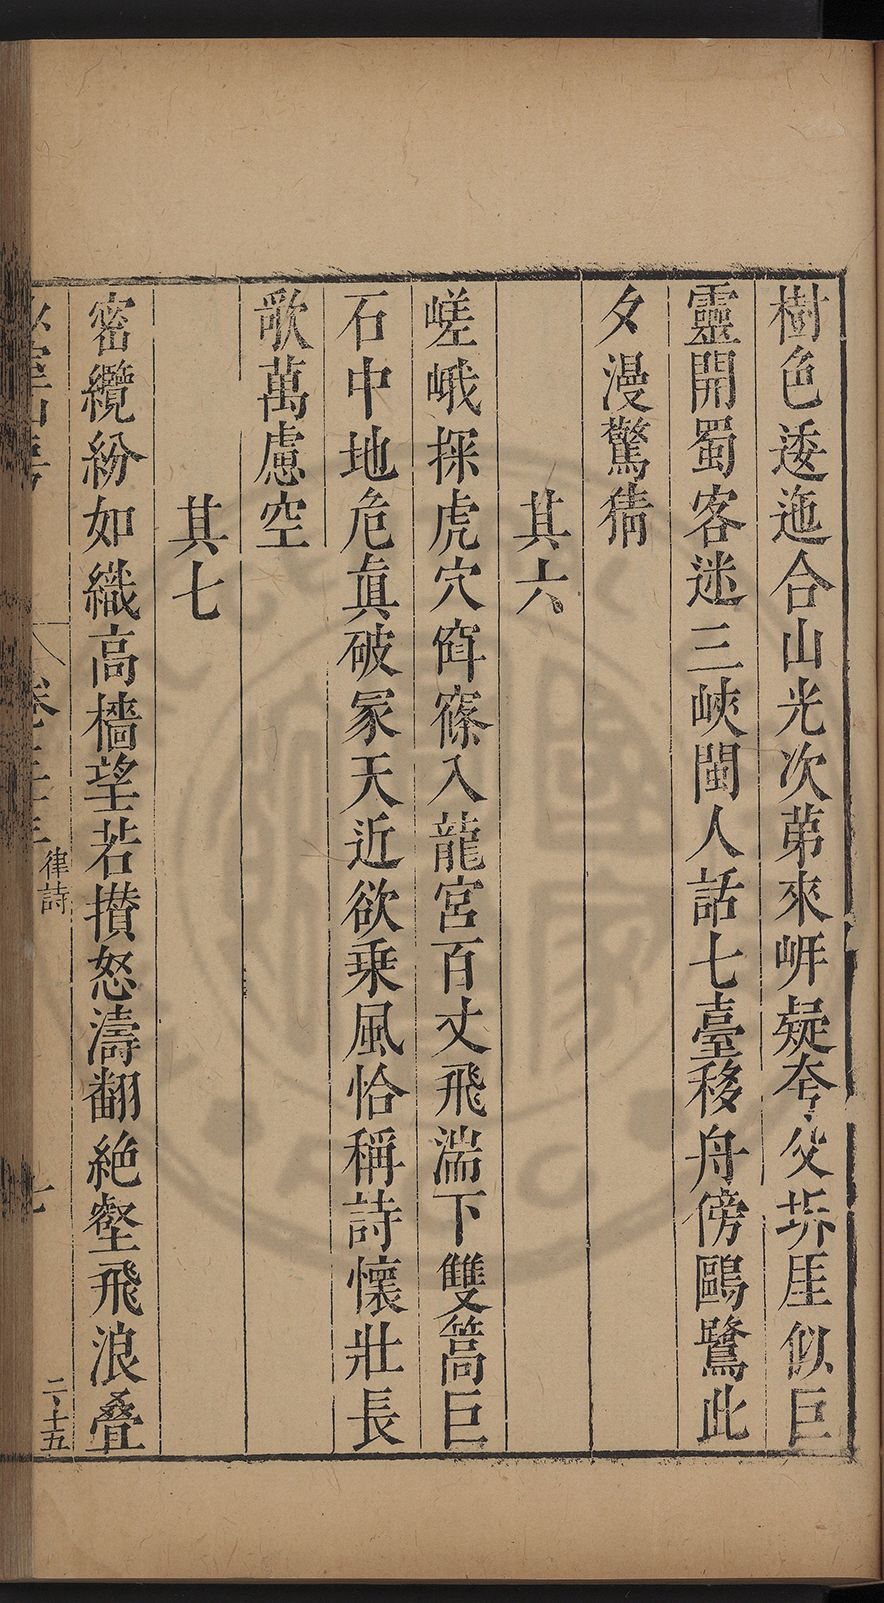 樹色逶迤合山光次苐來岍疑夸父坼厓似巨
靈開蜀客迷三峽閩人話七臺移舟傍鷗鷺此
夕漫驚猜
其六
嵯峨探虎穴窅窱入龍宮百丈飛湍下雙篙巨
石中地危眞破冡天近欲乗風恰稱詩懷壯長
歌萬慮空
其七
密纜紛如織高檣望若攅怒濤翻絶壑飛浪叠
卷
律詩
七
二十五